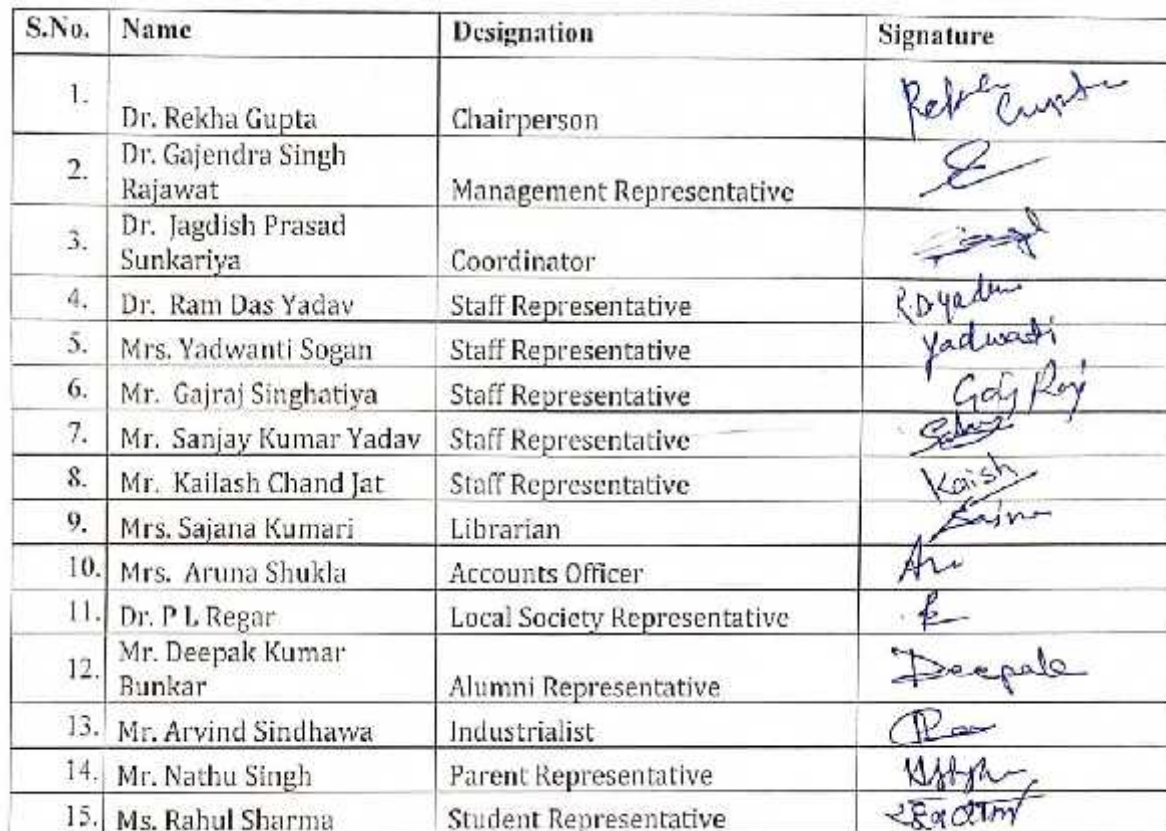 S.No. Name Designation Signature
1. Dr. Rekha Gupta Chairperson Rekha Gupta
2. Dr. Gajendra Singh
Rajawat Management Representative
3. Dr. Jagdish Prasad
Sunkariya Coordinator
4. Dr. Ram Das Yadav Staff Representative R.D yadav
5. Mrs. Yadwanti Sogan Staff Representative Yadwati
6. Mr. Gajraj Singhatiya Staff Representative Gaj Raj
7. Mr. Sanjay Kumar Yadav Staff Representative
8. Mr. Kailash Chand Jat Staff Representative Kaish
9. Mrs. Sajana Kumari Librarian
10. Mrs. Aruna Shukla Accounts Officer
11. Dr. P L Regar Local Society Representative
12. Mr. Deepak Kumar
Bunkar Alumni Representative Deepak
13. Mr. Arvind Sindhawa Industrialist
14. Mr. Nathu Singh Parent Representative
15. Ms. Rahul Sharma Student Representative